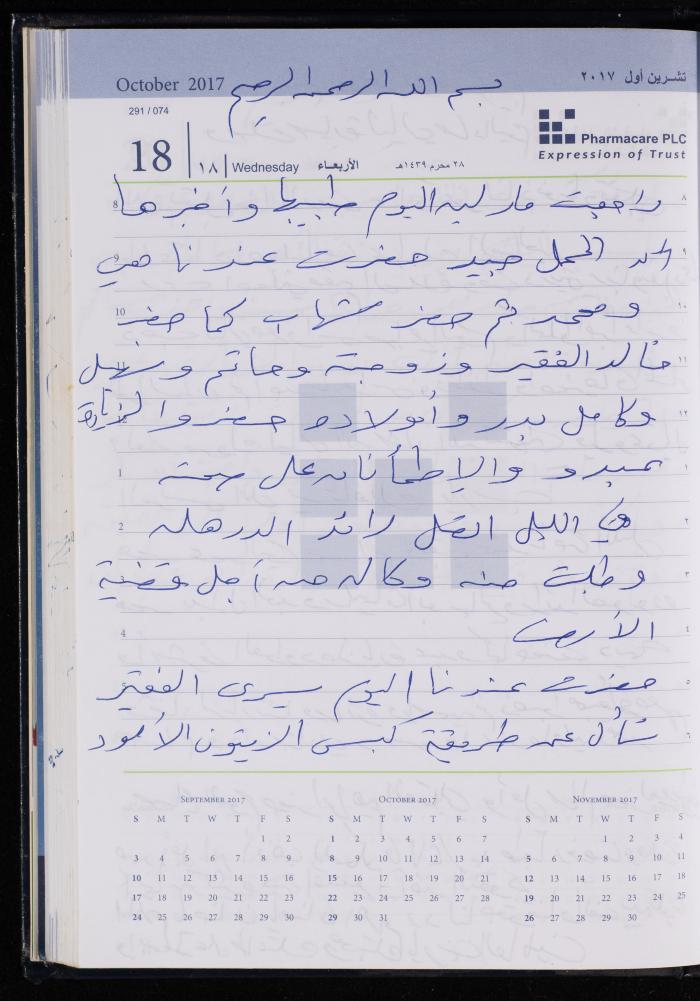 October 2017 بسم الله الرحمن الرحيم تشرين أول ٢٠١٧
291 / 074
Pharmacare PLC
Expression of Trust
18 | ١٨ | Wednesday الأربعاء ٢٨ محرم ١٤٣٩هـ
راجعت اليوم طبيبها وأخبرها
8 ٨
الحمل جيد حضرت عندنا هي
٩
ومحمد ثم حضر شهاب كما حضر
10 ١٠
خالد الفقير وزوجته وحاتم وسهل
11 ١١
وكامل بدر وأولاده حضروا لزيارة
١٢
والإطمأنان على صحته
1 ١
في الليل اتصل رائد
2 ٢
وطلبت منه وكالة من أجل قضية
٣
الأرض
4 ٤
حضرت عندنا اليوم يسرى الفقير
٥
تسأل عن طريقة كبس الزيتون الأسود
٦
September 2017
S M T W T F S
1 2
3 4 5 6 7 8 9
10 11 12 13 14 15 16
17 18 19 20 21 22 23
24 25 26 27 28 29 30
October 2017
S M T W T F S
1 2 3 4 5 6 7
8 9 10 11 12 13 14
15 16 17 18 19 20 21
22 23 24 25 26 27 28
29 30 31
November 2017
S M T W T F S
1 2 3 4
5 6 7 8 9 10 11
12 13 14 15 16 17 18
19 20 21 22 23 24 25
26 27 28 29 30